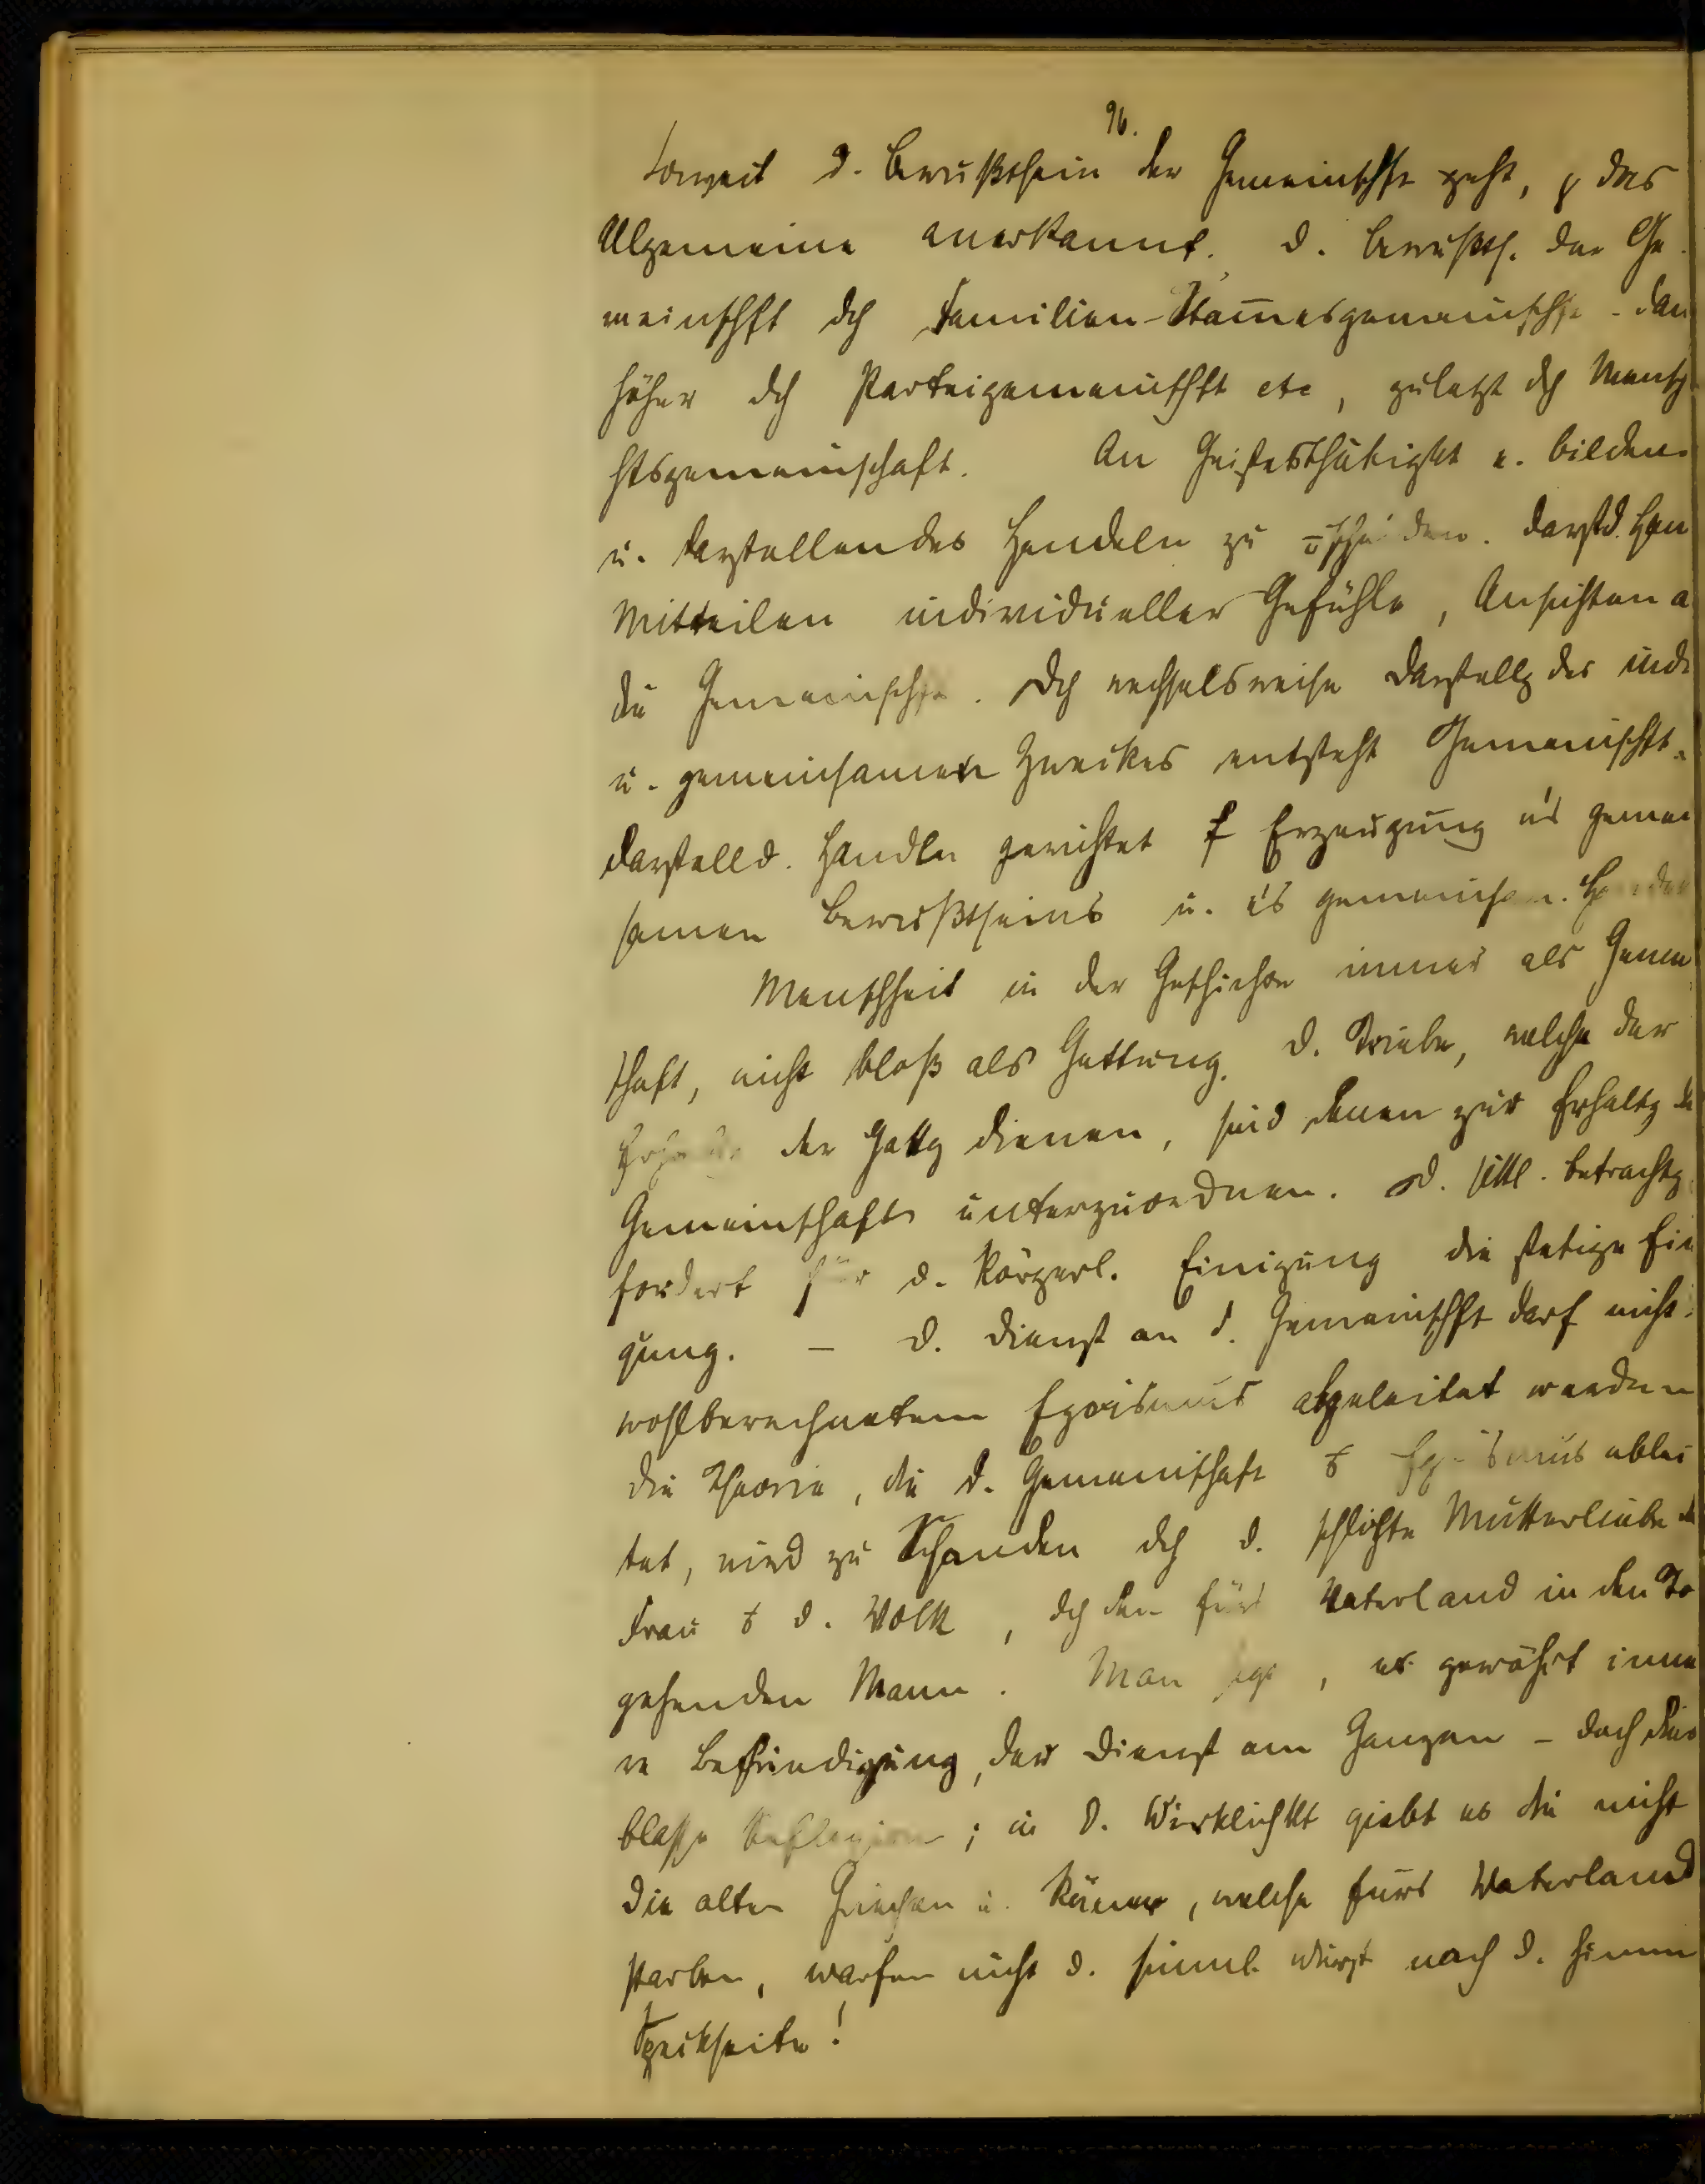 96.
Soweit d. Bewußtsein der Gemeinschft geht, das
Allgemeine anerkannt. d. Bewußts. der Ge
meinschft dch Familien-Stam̄esgemeinschft - dan
höher dch Parteigemeinschft etc, zuletzt dch Mensch
htsgemeinschaft. An Geistesthätigkt bilden
u. darstellendes Handeln zu scheiden. Darstd. Han
Mitteilen individueller Gefühle, Ansichten a
die Gemeinschft. Dch wechselsweise Darstellg des indi
u. gemeinsamen Zweckes entsteht Gemeinschft.
Darstelld. Handln gerichtet Erzeugung gemei
samen Bewußtseins u. gemeinsam.
Menschheit in der Geschichte immer als Gemein
schaft, nicht bloß als Gattung. D. Triebe, welche der
der Gattg dienen, sind denen zur Erhaltg de
Gemeinschaft unterzuordnen. D. sittl. Betrachtg
fordert für d. körperl. Einigung die stetige Ein
gung. – D. Dienst an d. Gemeinschft darf nicht
wohlberechnetem Egoismus abgeleitet werden
die Theorie, die d. Gemeinschaft Egoismus ablei
tet, wird zu Schanden dch d. schlichte Mutterliebe
Frau d. Volk, dch den fürs Vaterland in den To
gehenden Mann. Man sage, es gewährt inne
re Befriedigung, der Dienst am Ganzen – doch dies
blasse Reflexion; in d. Wirklichkt giebt es die nicht
Die alten Griechen u. Römer, welche fürs Vaterland
starben, warfen nicht d. Wurst nach d. himm
Speckseite!